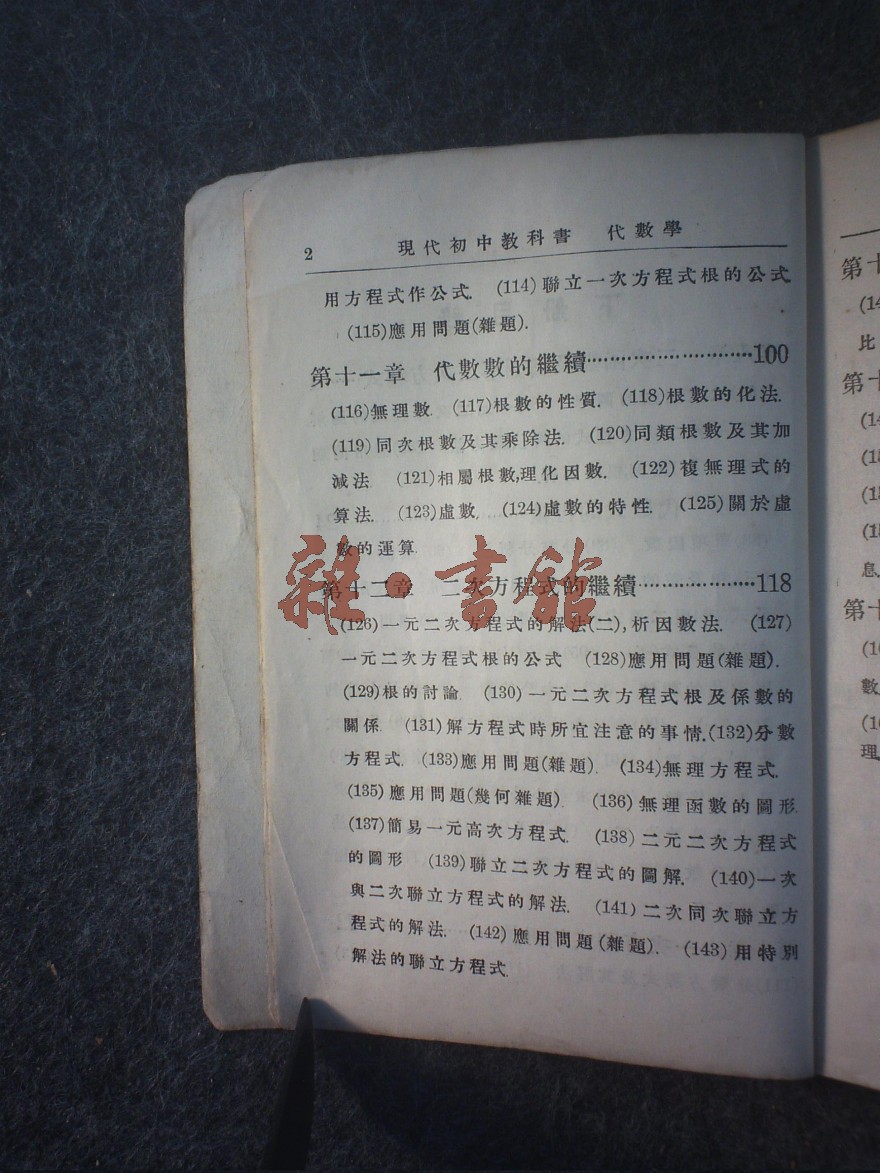 2 現代初中教科書 代數學
用方程式作公式. (114)聯立一次方程式根的公式.
(115)應用問題(雜題).
第十一章 代數數的繼續 100
(116)無理數. (117)根數的性質. (118)根數的化法.
(119)同次根數及其乘除法. (120)同類根數及其加
減法. (121)相屬根數,理化因數. (122)複無理式的
算法. (123)虛數. (124)虛數的特性. (125)關於虛
數的運算.
第十二章 二次方程式的繼續 118
(126)一元二次方程式的解法(二),析因數法. (127)
一元二次方程式根的公式 (128)應用問題(雜題).
(129)根的討論. (130)一元二次方程式根及係數的
關係. (131)解方程式時所宜注意的事情.(132)分數
方程式. (133)應用問題(雜題). (134)無理方程式.
(135)應用問題(幾何雜題) (136)無理函數的圖形.
(137)簡易一元高次方程式. (138)二元二次方程式
的圖形 (139)聯立二次方程式的圖解. (140)一次
與二次聯立方程式的解法. (141)二次同次聯立方
程式的解法. (142)應用問題(雜題). (143)用特別
解法的聯立方程式.
雜·書館
第十
比
第十
息
第十
數
理